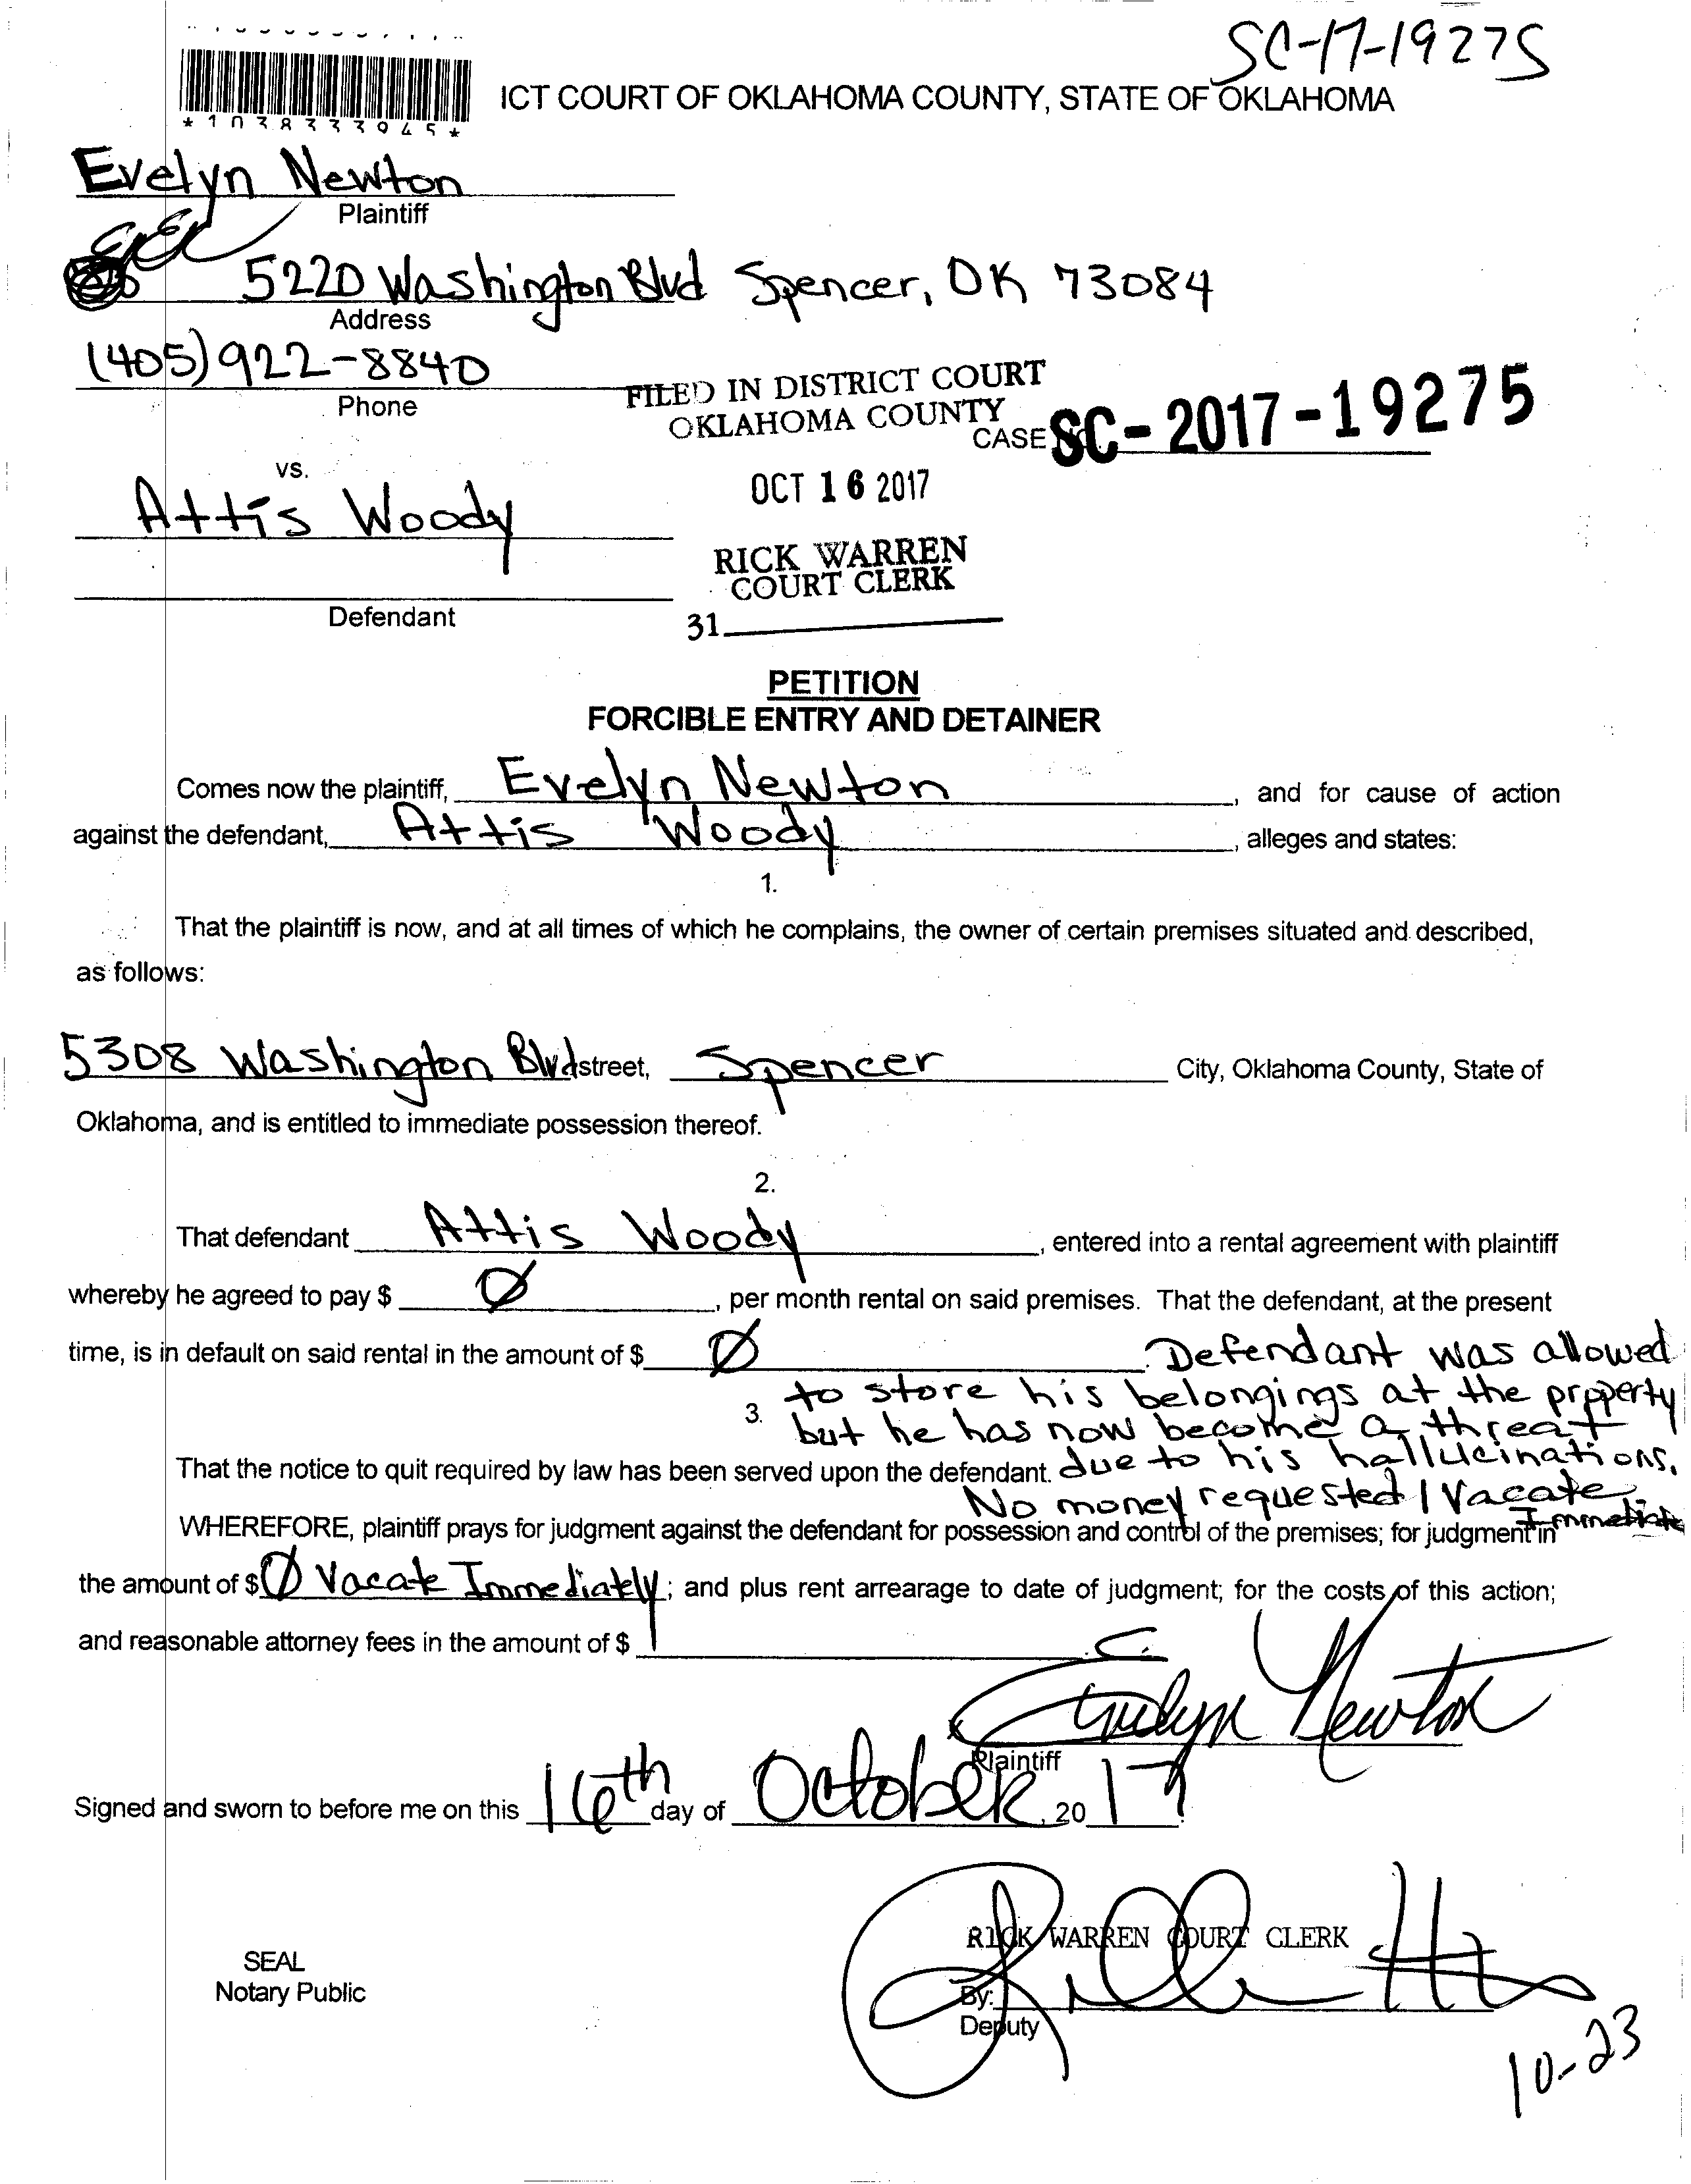 SC-17-19275
ICT COURT OF OKLAHOMA COUNTY, STATE OF OKLAHOMA
* 1 0 3 8 3 3 3 9 4 5 *
Evelyn Newton
Plaintiff
5220 Washington Blvd Spencer, OK 73084
Address
(405) 922-8840
Phone
FILED IN DISTRICT COURT
OKLAHOMA COUNTY
CASE SC-2017-19275
vs.
OCT 16 2017
Attis Woody
RICK WARREN
COURT CLERK
Defendant
31
PETITION
FORCIBLE ENTRY AND DETAINER
Comes now the plaintiff, Evelyn Newton, and for cause of action
against the defendant, Attis Woody, alleges and states:
1.
That the plaintiff is now, and at all times of which he complains, the owner of certain premises situated and described,
as follows:
5308 Washington Blvd street, Spencer City, Oklahoma County, State of
Oklahoma, and is entitled to immediate possession thereof.
2.
That defendant Attis Woody, entered into a rental agreement with plaintiff
whereby he agreed to pay $ Ø, per month rental on said premises. That the defendant, at the present
time, is in default on said rental in the amount of $ Ø. Defendant was allowed
to store his belongings at the property
3. but he has now become a threat
That the notice to quit required by law has been served upon the defendant. due to his hallucinations.
No money requested / Vacate Immediate
WHEREFORE, plaintiff prays for judgment against the defendant for possession and control of the premises; for judgment in
the amount of $ Ø Vacate Immediately; and plus rent arrearage to date of judgment; for the costs of this action;
and reasonable attorney fees in the amount of $
x Evelyn Newton
Plaintiff
Signed and sworn to before me on this 16th day of October, 2017.
RICK WARREN COURT CLERK
SEAL
Notary Public
By:
Deputy
10-23